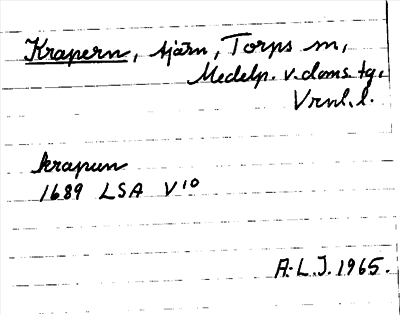 Krapern, tjärn, Torps sn,
Medelp. v. doms. tg.
Vrnl. l.
krapun
1689 LSA V10
A.L.J. 1965.